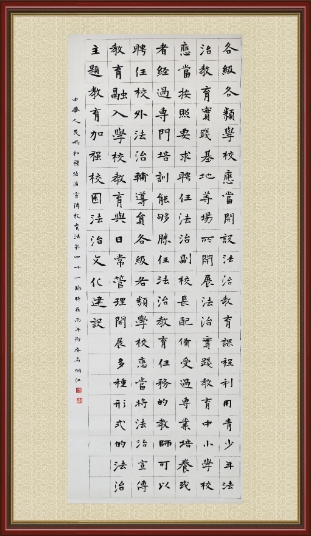 各級各類學校應當開設法治教育課程利用青少年法
治教育實踐基地等場所開展法治實踐教育中小學校
應當按照要求聘任法治副校長配備受過專業培養或
者經過專門培訓能夠勝任法治教育任務的教師可以
聘任校外法治輔導員各級各類學校應當將法治宣傳
教育融入學校教育與日常管理開展多種形式的法治
主題教育加强校園法治文化建設
中華人民共和國法治宣傳教育法第四十一條